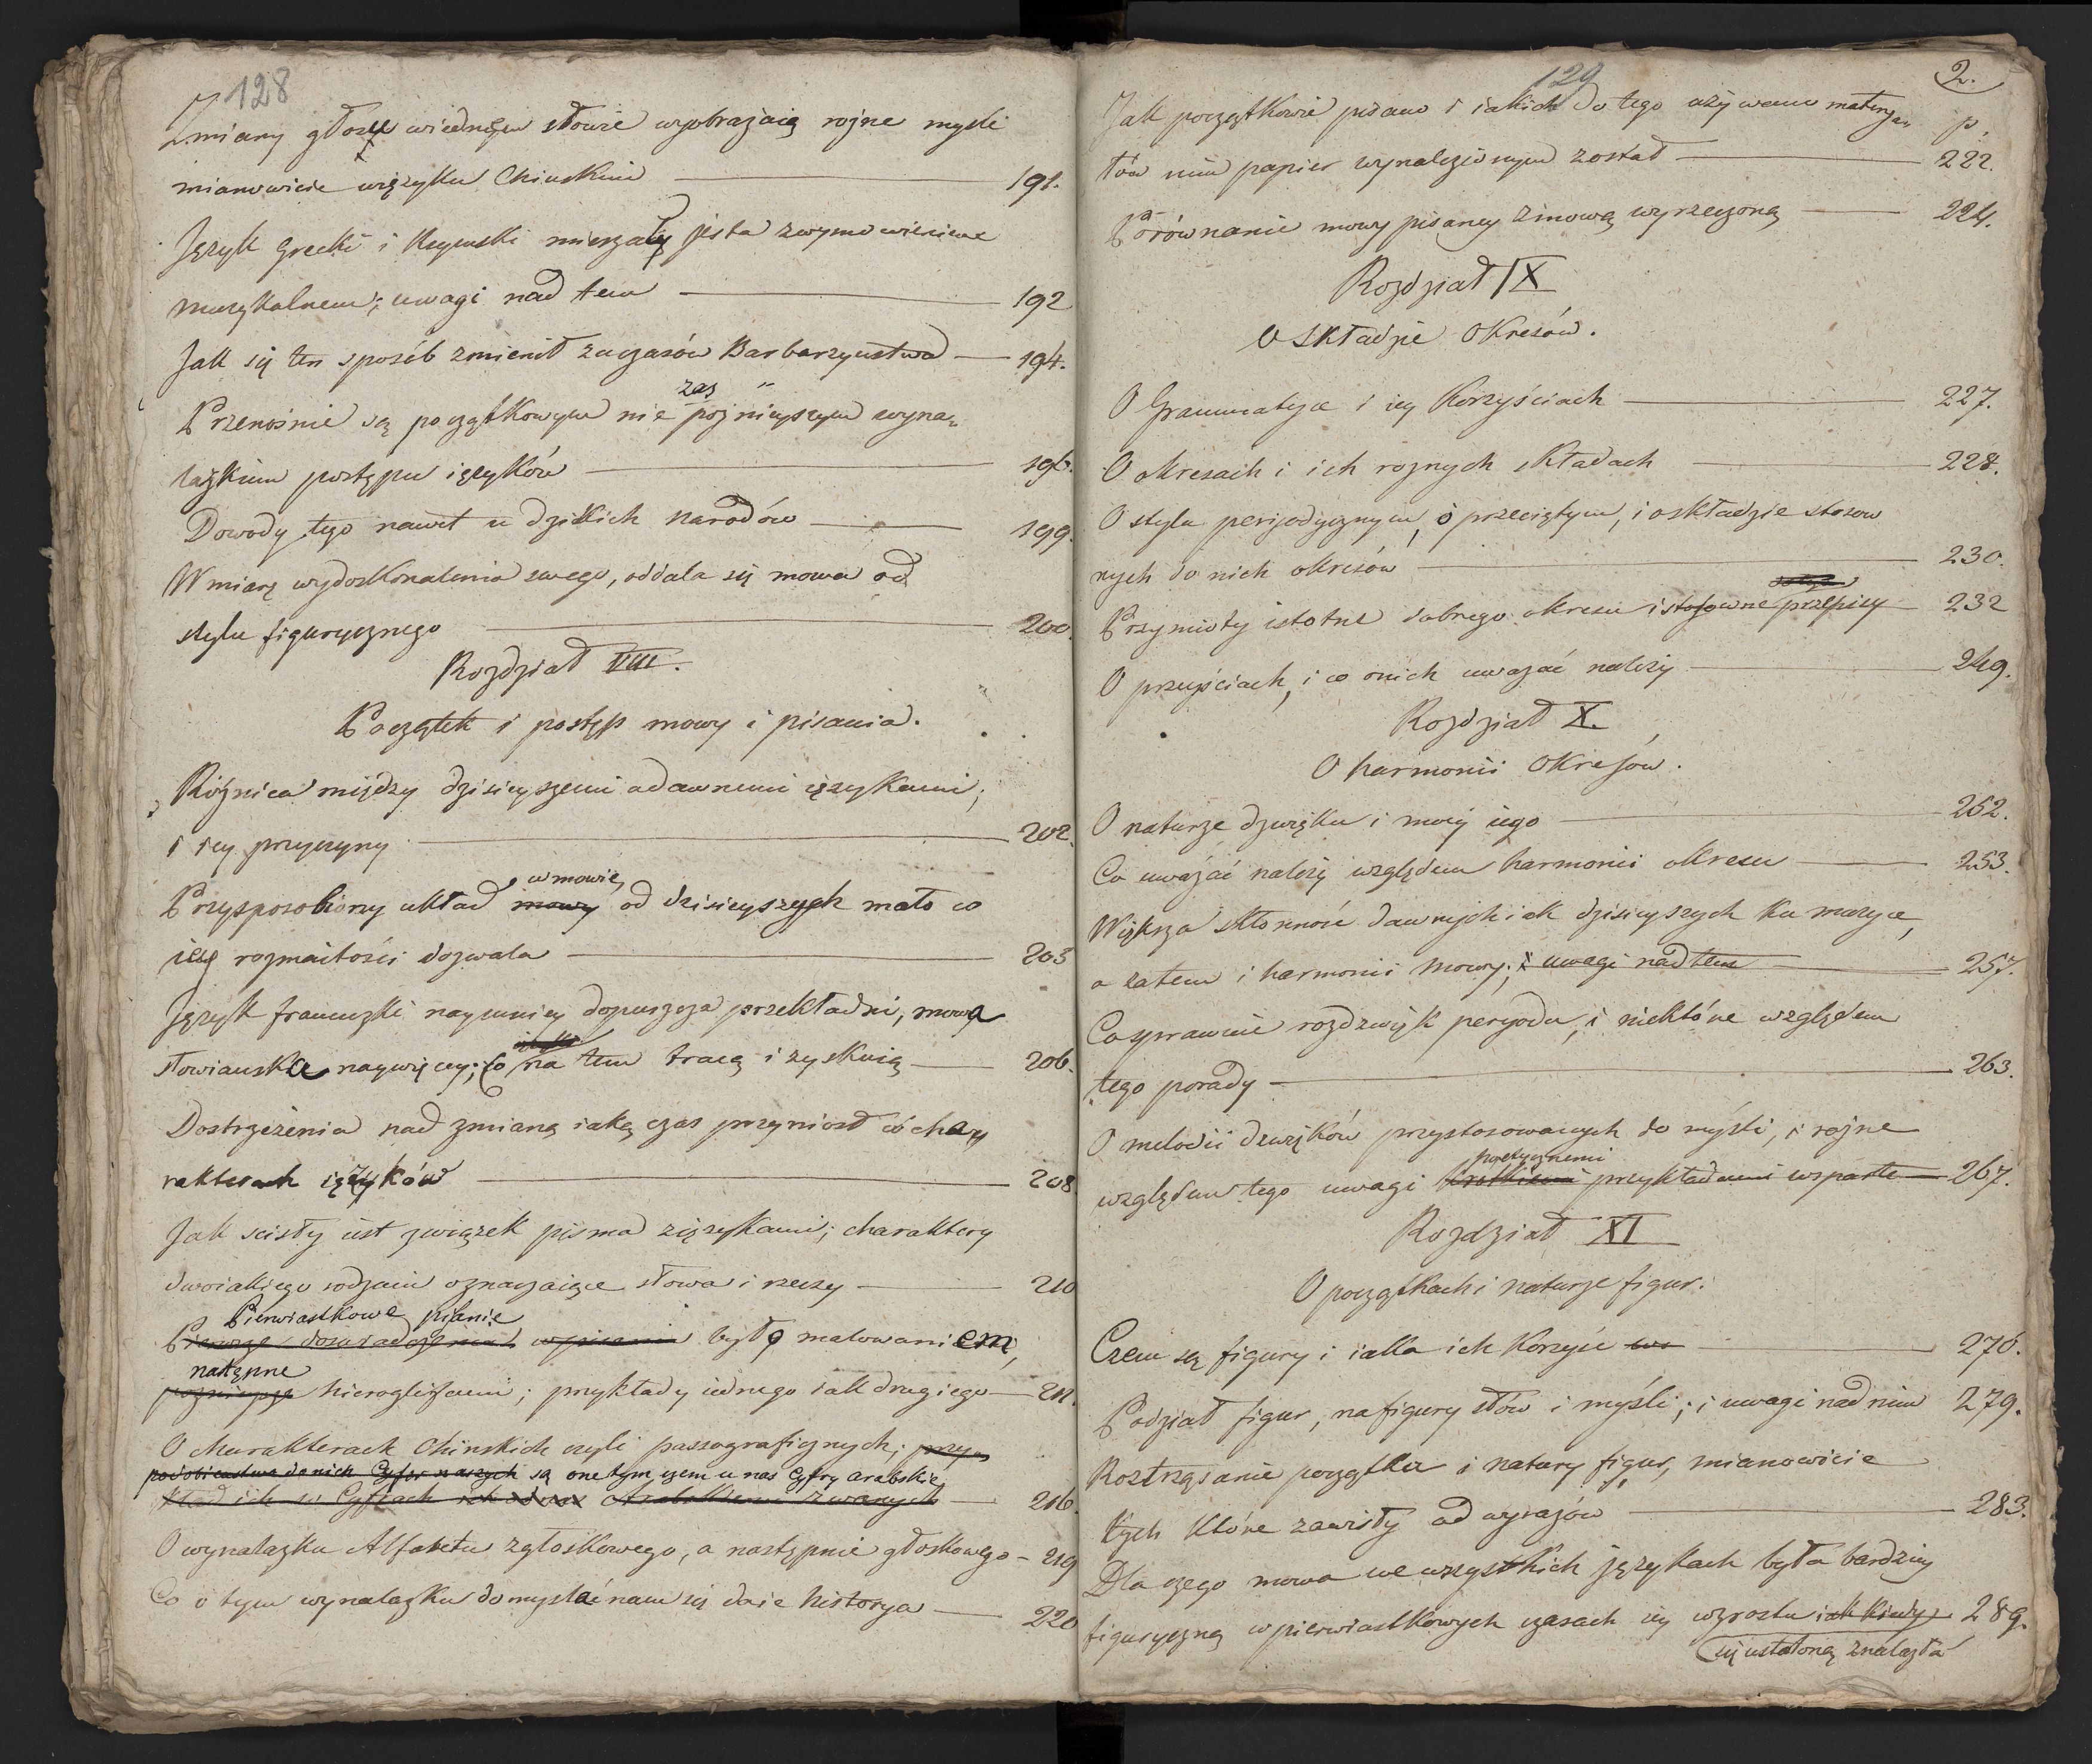 128
Zmiany głosu wiednym słowie wyobrażaią rożne mysli
mianowicie więzyku Chinskim 191.
Język Grecki i Rzymski mieszały gesta zwymowieniem
muzykalnem; uwagi nad tem 192
Jak się ten sposób zmienił zaczasów Barbarzynstwa 194.
zas
Przenośnie są początkowym nie poźnieyszym wyna=
lazkiem postępu ięzyków 196.
Dowody tego nawet u dzikich narodów 199.
W miarę wydoskonalenia swego, oddala się mowa od
stylu figurycznego 200.
Rozdział VIII.
Początek i postęp mowy i pisania.
Różnica między dzisieyszemi adawnemi ięzykami;
i iey przyczyny 202.
w mowie
Przysposobiony układ mowy od dzisieyszych mało co
iey rozmaitości dozwala 203
Język francuzki naymniey dopuszcza przekładni, mowa
słowianska naywięcey; co na tem tracą i zyskuią 206.
Dostrzeżenia nad zmianą iaką czas przyniosł w cha=
rakterach ięzyków 208
Jak scisły iest związek pisma zięzykami; charaktery
dwoiakiego rodzaiu oznaczaiące słowa i rzeczy 210
Pierwiastkowe pisanie
Pierwsze doswiadczenia w pisaniu było malowaniem,
następne
poznieysze hieroglifami; przykłady iednego iak drugiego 211.
O charakterach Chinskich czyli passograficznych; przy=
podobieństwa do nich Cyfer naszych są one tym, czem u nas Cyfry arabskie
kład ich w Cyfrach Arabskiemi zwanych 216.
O wynalazku Alfabetu zgłoskowego, a następnie głoskowego 219
Co o tym wynalazku domyslać nam się daie historya 220
129
2.
Jak początkowie pisano i iakich do tego używano materya= p.
łów nim papier wynalezionym został 222.
Porównanie mowy pisaney zmową wyrzeczoną 224.
Rozdział IX
O Składzie Okresów.
O Grammatyce i iey Korzyściach 227.
O okresach i ich rożnych składach 228.
O stylu peryodycznym, o przeciętym, i o składzie stosow
nych do nich okresów 230.
Przymioty istotne dobrego okresu i stosowne przepisy 232
O przeyściach, i co onich uważać należy 249.
Rozdział X.
O harmonii Okresów.
O naturze dzwięku i mocy iego 252.
Co uważać należy względem harmonii okresu 253.
Większa skłonność dawnych iak dzisieyszych ku muzyce,
a zatem i harmonii mowy; i uwagi nad tem 257.
Co sprawuie rozdzwięk peryodu, i niektóre względem
tego porady 263.
O melodii dzwięków przystosowanych do myśli, i rożne
poetycznemi
względem tego uwagi krótkiemi przykładami wsparte 267.
Rozdział XI
O początkach i naturze figur.
Czem są figury i iaka ich korzyść 276.
Podział figur, na figury słów i myśli; i uwagi nad nim 279.
Roztrząsanie początku i natury figur, mianowicie
tych które zawisły od wyrazów 283.
Dla czego mowa we wszystkich językach była bardziey
figuryczną w pierwiastkowych czasach iey wzrostu iak kiedy 289.
się ustaloną znalazła